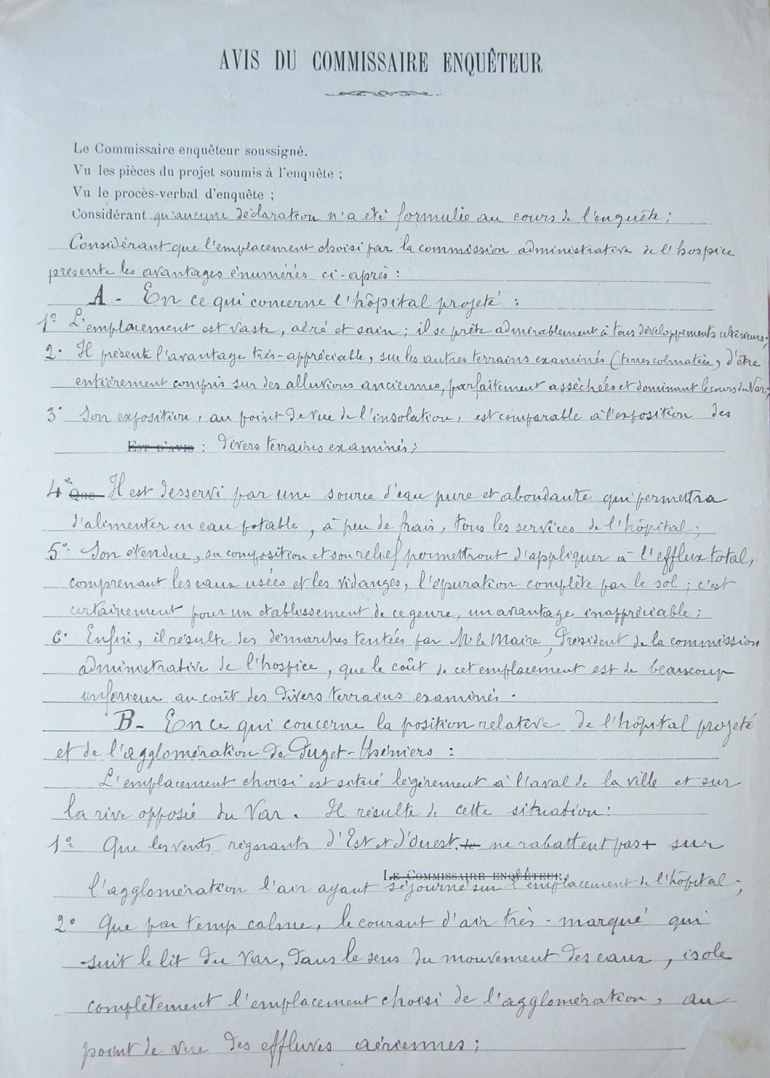 AVIS DU COMMISSAIRE ENQUÊTEUR
Le Commissaire enquêteur soussigné.
Vu les pièces du projet soumis à l'enquête ;
Vu le procès-verbal d'enquête ;
Considérant qu'aucune déclaration n'a été formulée au cours de l'enquête ;
Considérant que l'emplacement choisi par la commission administrative de l'hospice
présente les avantages énumérés ci-après :
A - En ce qui concerne l'hôpital projeté :
1° L'emplacement est vaste, aéré et sain ; il se prête admirablement à tous développements ultérieurs ;
2° Il présente l'avantage très-appréciable, sur les autres terrains examinés (terres colmatées), d'être
entièrement compris sur des alluvions anciennes, parfaitement asséchées et dominant le cours du Var ;
3° Son exposition, au point de vue de l'insolation, est comparable à l'exposition des
EST D'AVIS : divers terrains examinés ;
4° Que Il est desservi par une source d'eau pure et abondante qui permettra
d'alimenter en eau potable, à peu de frais, tous les services de l'hôpital ;
5° Son étendue, sa composition et son relief permettront d'appliquer à l'efflux total,
comprenant les eaux usées et les vidanges, l'épuration complète par le sol ; c'est
certainement pour un établissement de ce genre, un avantage inappréciable ;
6° Enfin, il résulte des démarches tentées par Mr le Maire, Président de la commission
administrative de l'hospice, que le coût de cet emplacement est de beaucoup
inférieur au coût des divers terrains examinés.
B - En ce qui concerne la position relative de l'hôpital projeté
et de l'agglomération de Puget-Théniers :
L'emplacement choisi est situé légèrement à l'aval de la ville et sur
la rive opposée du Var. Il résulte de cette situation :
1° Que les vents régnants d'Est et d'Ouest ne rabattent pas sur
LE COMMISSAIRE ENQUÊTEUR,
l'agglomération l'air ayant séjourné sur l'emplacement de l'hôpital ;
2° Que par temp calme, le courant d'air très-marqué qui
suit le lit du Var, dans le sens du mouvement des eaux, isole
complètement l'emplacement choisi de l'agglomération, au
point de vue des effluves aériennes ;